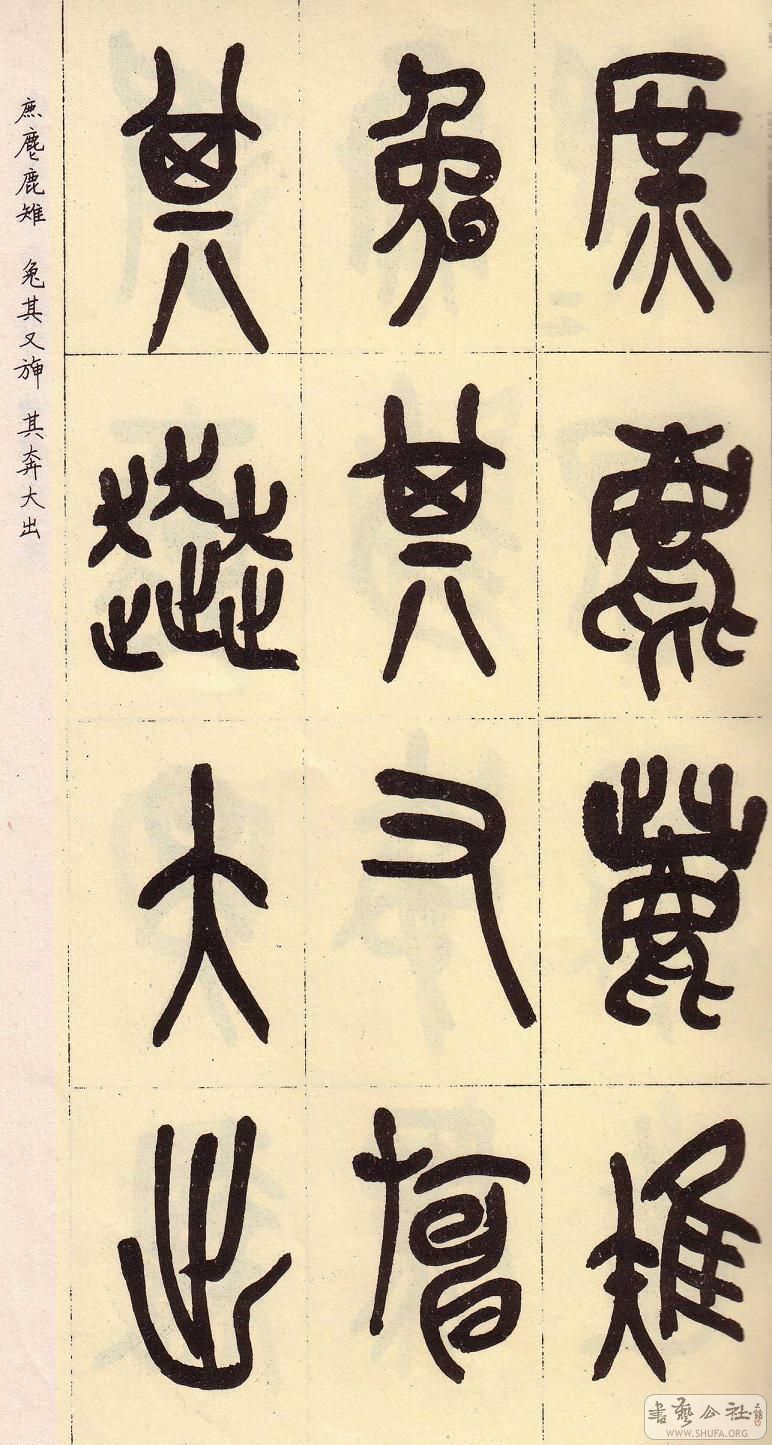 庶麀鹿雉
兔其又
其奔大出
庶麀鹿雉 兔其又 其奔大出
書藝公社
WWW.SHUFA.ORG